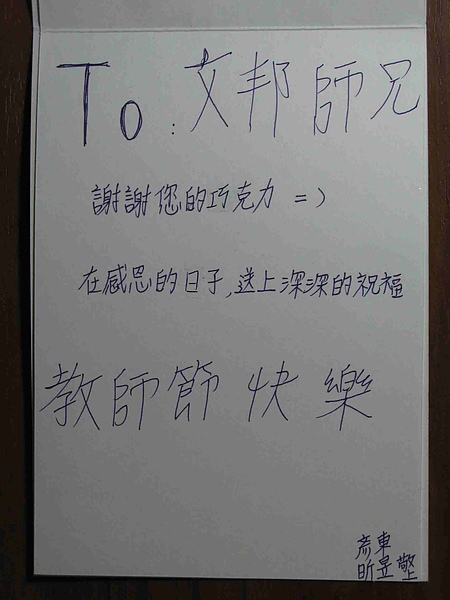 To：文邦師兄
謝謝您的巧克力 =)
在感恩的日子,送上深深的祝福
教師節快樂
彥東
昕昱 敬上